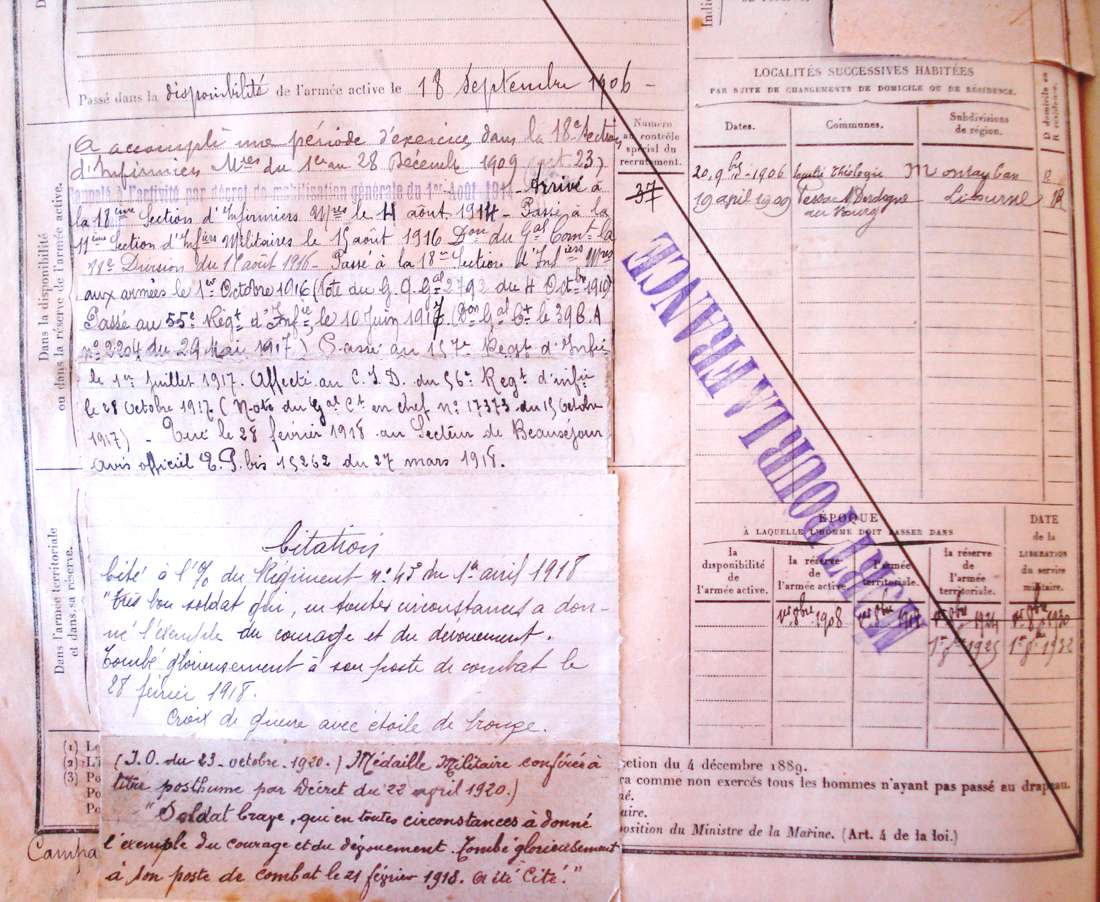 Passé dans la disponibilité de l'armée active le 18 Septembre 1906 -
Dans la disponibilité
ou dans la réserve de l'armée active.
A accompli une période d'exercices dans la 18e Section
d'Infirmiers Mres du 1er au 28 Décembre 1909
Rappelé à l'activité par décret de mobilisation générale du 1er Août 1914 - Arrivé à
la 18ème Section d'Infirmiers Mres le 4 août 1914 - Passé à la
11ème Section d'Infiers Militaires le 15 août 1916 Don du Gal Comt la
11e Division du 1er août 1916 - Passé à la 18me Section d'Infiers Mres
aux armées le 1er Octobre 1916 (Note du G.Q.Gal 2792 du 4 Octbre 1916)
Passé au 55e Régt d'Infie le 10 Juin 1917 (Don Gal Ct le 39 C.A
no 2204 du 29 Mai 1917) Passé au 157e Regt d'Infie
le 1er Juillet 1917. Affecté au C.I.D. du 56e Regt d'infie
le 28 Octobre 1917 (Note du Gal Ct en chef no 17373 du 15 Octobre
1917) - Tué le 28 février 1918 au Secteur de Beauséjour
avis officiel E.P. bis 15262 du 27 mars 1918.
Dans l'armée territoriale
et dans sa réserve.
Citation
Cité à l'O/ du Régiment no 45 du 1er avril 1918
"Très bon soldat qui, en toutes circonstances a don-
né l'exemple du courage et du dévouement.
Tombé glorieusement à son poste de combat le
28 février 1918.
Croix de guerre avec étoile de bronze.
(1) Le
(2) L'i
(3) Po
Po
(J.O. du 23 octobre 1920.) Médaille Militaire conférée à
titre posthume par Décret du 22 avril 1920.)
"Soldat brave, qui en toutes circonstances à donné
l'exemple du courage et du dévouement. Tombé glorieusement
à son poste de combat le 21 février 1918. A été Cité."
Campa
Numéro
au contrôle
spécial du
recrutement.
37
MORT POUR LA FRANCE
LOCALITÉS SUCCESSIVES HABITÉES
PAR SUITE DE CHANGEMENTS DE DOMICILE OU DE RÉSIDENCE.
Dates.
Communes.
Subdivisions
de région.
D domicile ou
R résidence.
20 9bre 1906 faculté théologie Montauban R
19 april 1909 Pessac s/ Dordogne Libourne R
au Bourg
ÉPOQUE
À LAQUELLE L'HOMME DOIT PASSER DANS
la
disponibilité
de
l'armée active.
la réserve
de
l'armée active.
l'armée
territoriale.
la réserve
de
l'armée
territoriale.
DATE
de la
LIBÉRATION
du service
militaire.
1er 8bre 1908
ction du 4 décembre 1889.
ra comme non exercés tous les hommes n'ayant pas passé au drapeau.
né.
aire.
position du Ministre de la Marine. (Art. 4 de la loi.)